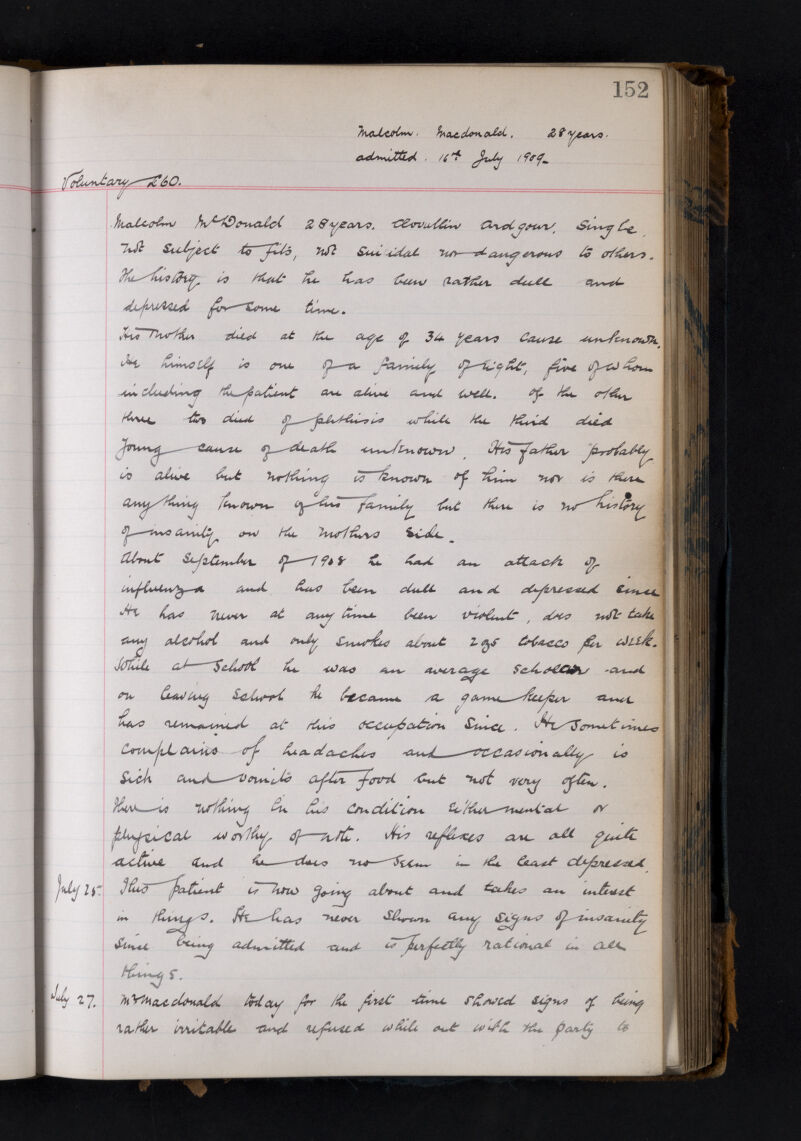 152
Malcolm Macdonald. 28 years.
admitted. 16th July 1909.
Voluntary £60.
Malcolm McDonald 28 years. Clovullin Ardgour. Single,
not subject to fits, not suicidal nor dangerous to others.
The history is that he has been rather dull and
depressed for some time.
His Mother died at the age of 34 years cause unknown.
He himself is one of a family of eight, five of whom
including the patient are alive and well. Of the other
three two died of phthisis while the third died
young cause of death unknown. His father probably
is alive but nothing is known of him nor is there
anything known of his family but there is no history
of insanity on the mothers side.
About September of 1908 he had an attack of
influenza and has been dull and depressed since
He has never at any time been violent, does not take
any alcohol and only smokes about 2 ozs tobacco per week.
While at School he was an average scholar and
on leaving School he became a game keeper and
has remained at this occupation since. He sometimes
complains of headaches and occasionally is
sick and vomits after food but not very often.
There is nothing in his condition either mental or
physical worthy of note. His reflexes are all quite
active and he does no seem in the least depressed.
July 25. This patient is now going about and takes an interest
in things. He has never shown any signs of insanity
since being admitted and is perfectly rational in all
things.
July 27. Mr Macdonald today for the first time showed signs of being
rather irritable and refused while out with the party to